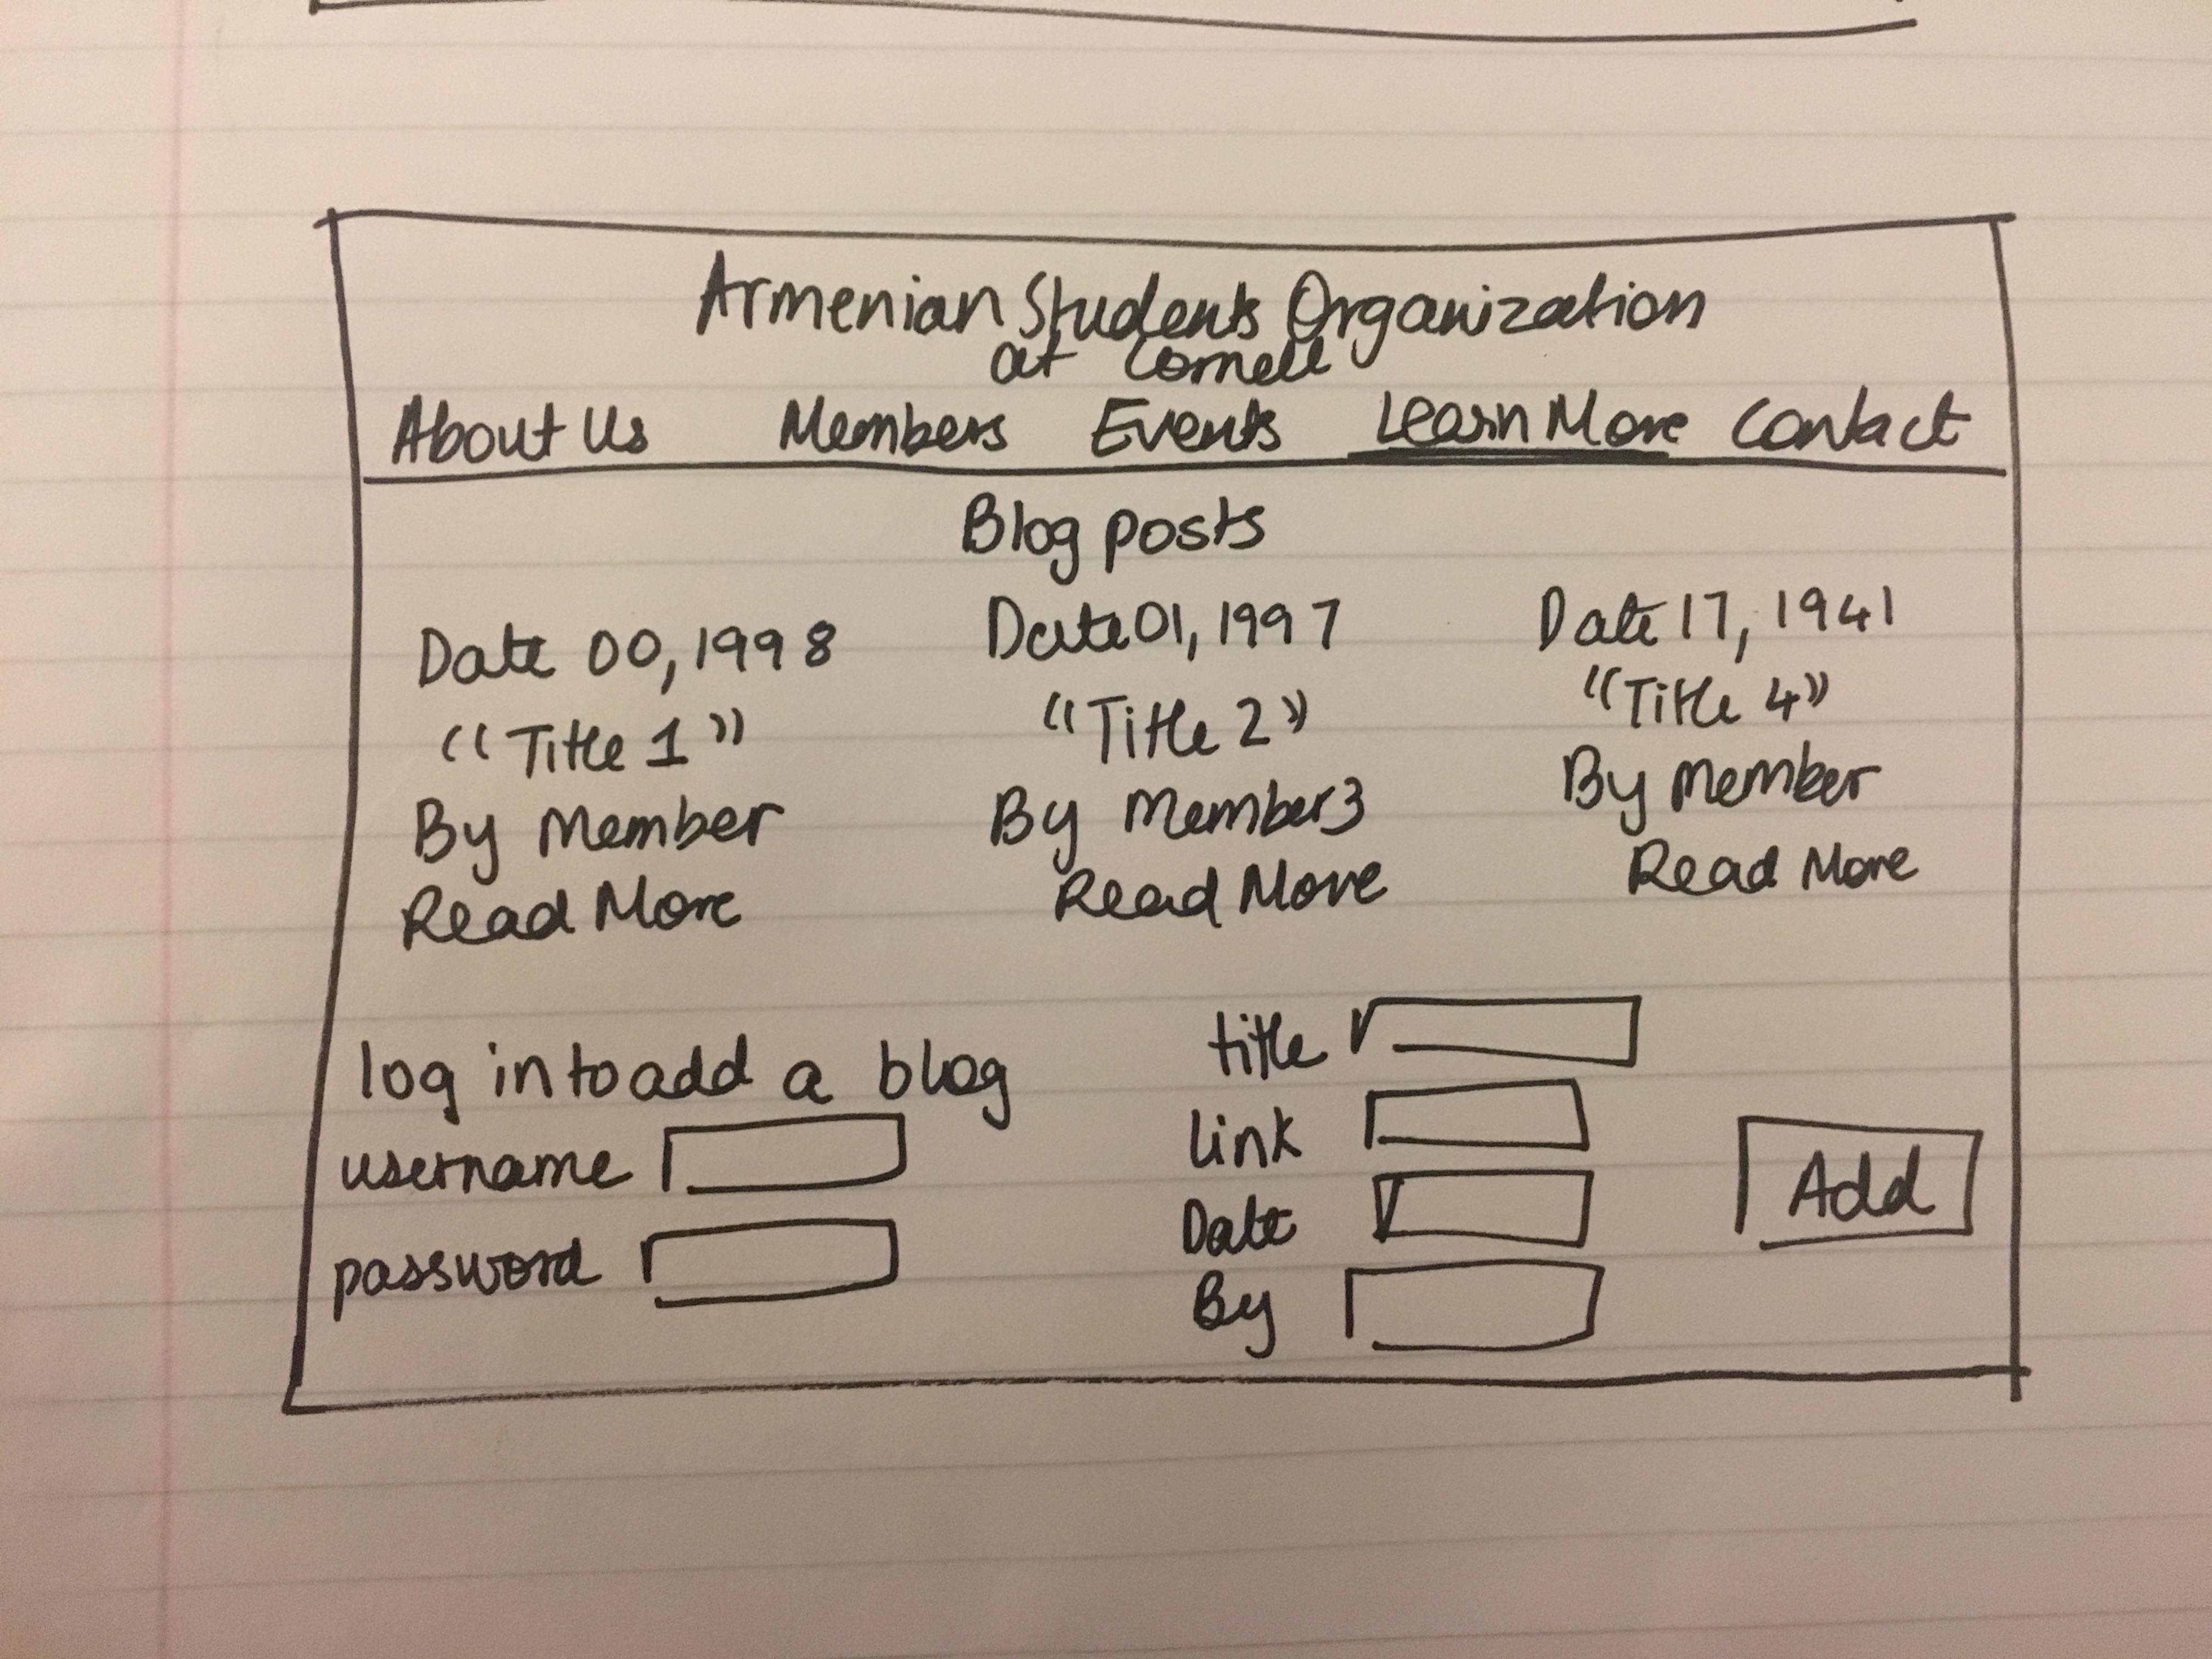 Armenian Students Organization
at Cornell
About Us Members Events Learn More Contact
Blog posts
Date 00, 1998
"Title 1"
By Member
Read More
Date 01, 1997
"Title 2"
By Member3
Read More
Date 17, 1941
"Title 4"
By Member
Read More
log in to add a blog
username
password
title
link
Date
By
Add